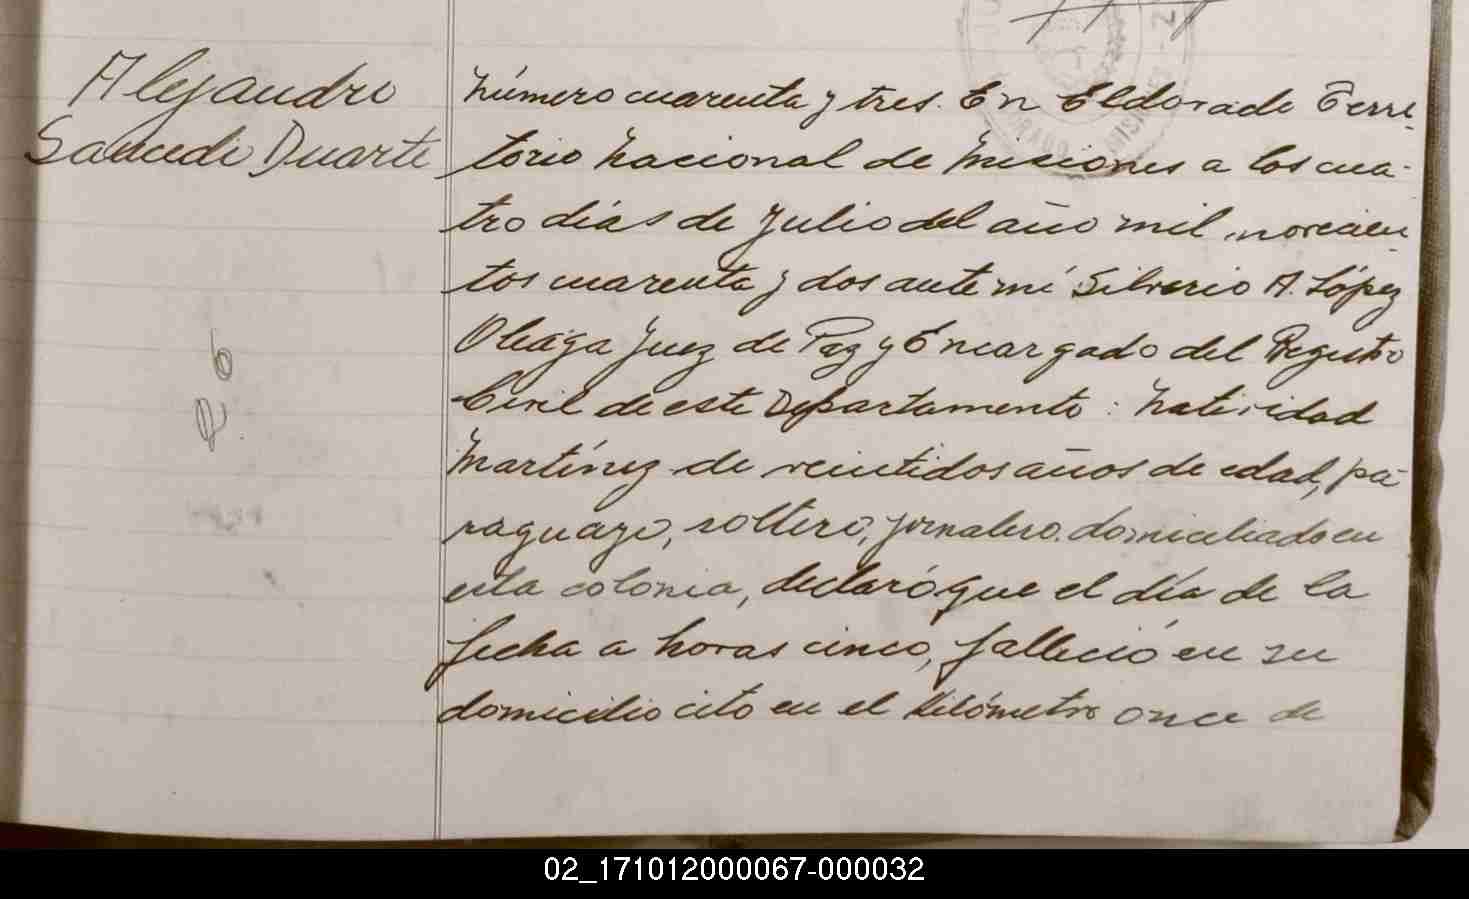 Alejandro
Saucedo Duarte
Número cuarenta y tres. En Eldorado Terri-
torio Nacional de Misiones a los cua-
tro días de Julio del año mil novecien-
tos cuarenta y dos ante mí Silverio A. López
Oleaga Juez de Paz y Encargado del Registro
Civil de este Departamento: Natividad
Martínez de veintidos años de edad, pa-
raguayo, soltero, jornalero domiciliado en
esta colonia, declaró que el día de la
fecha a horas cinco, falleció en su
domicilio cito en el kilómetro once de
02_171012000067-000032